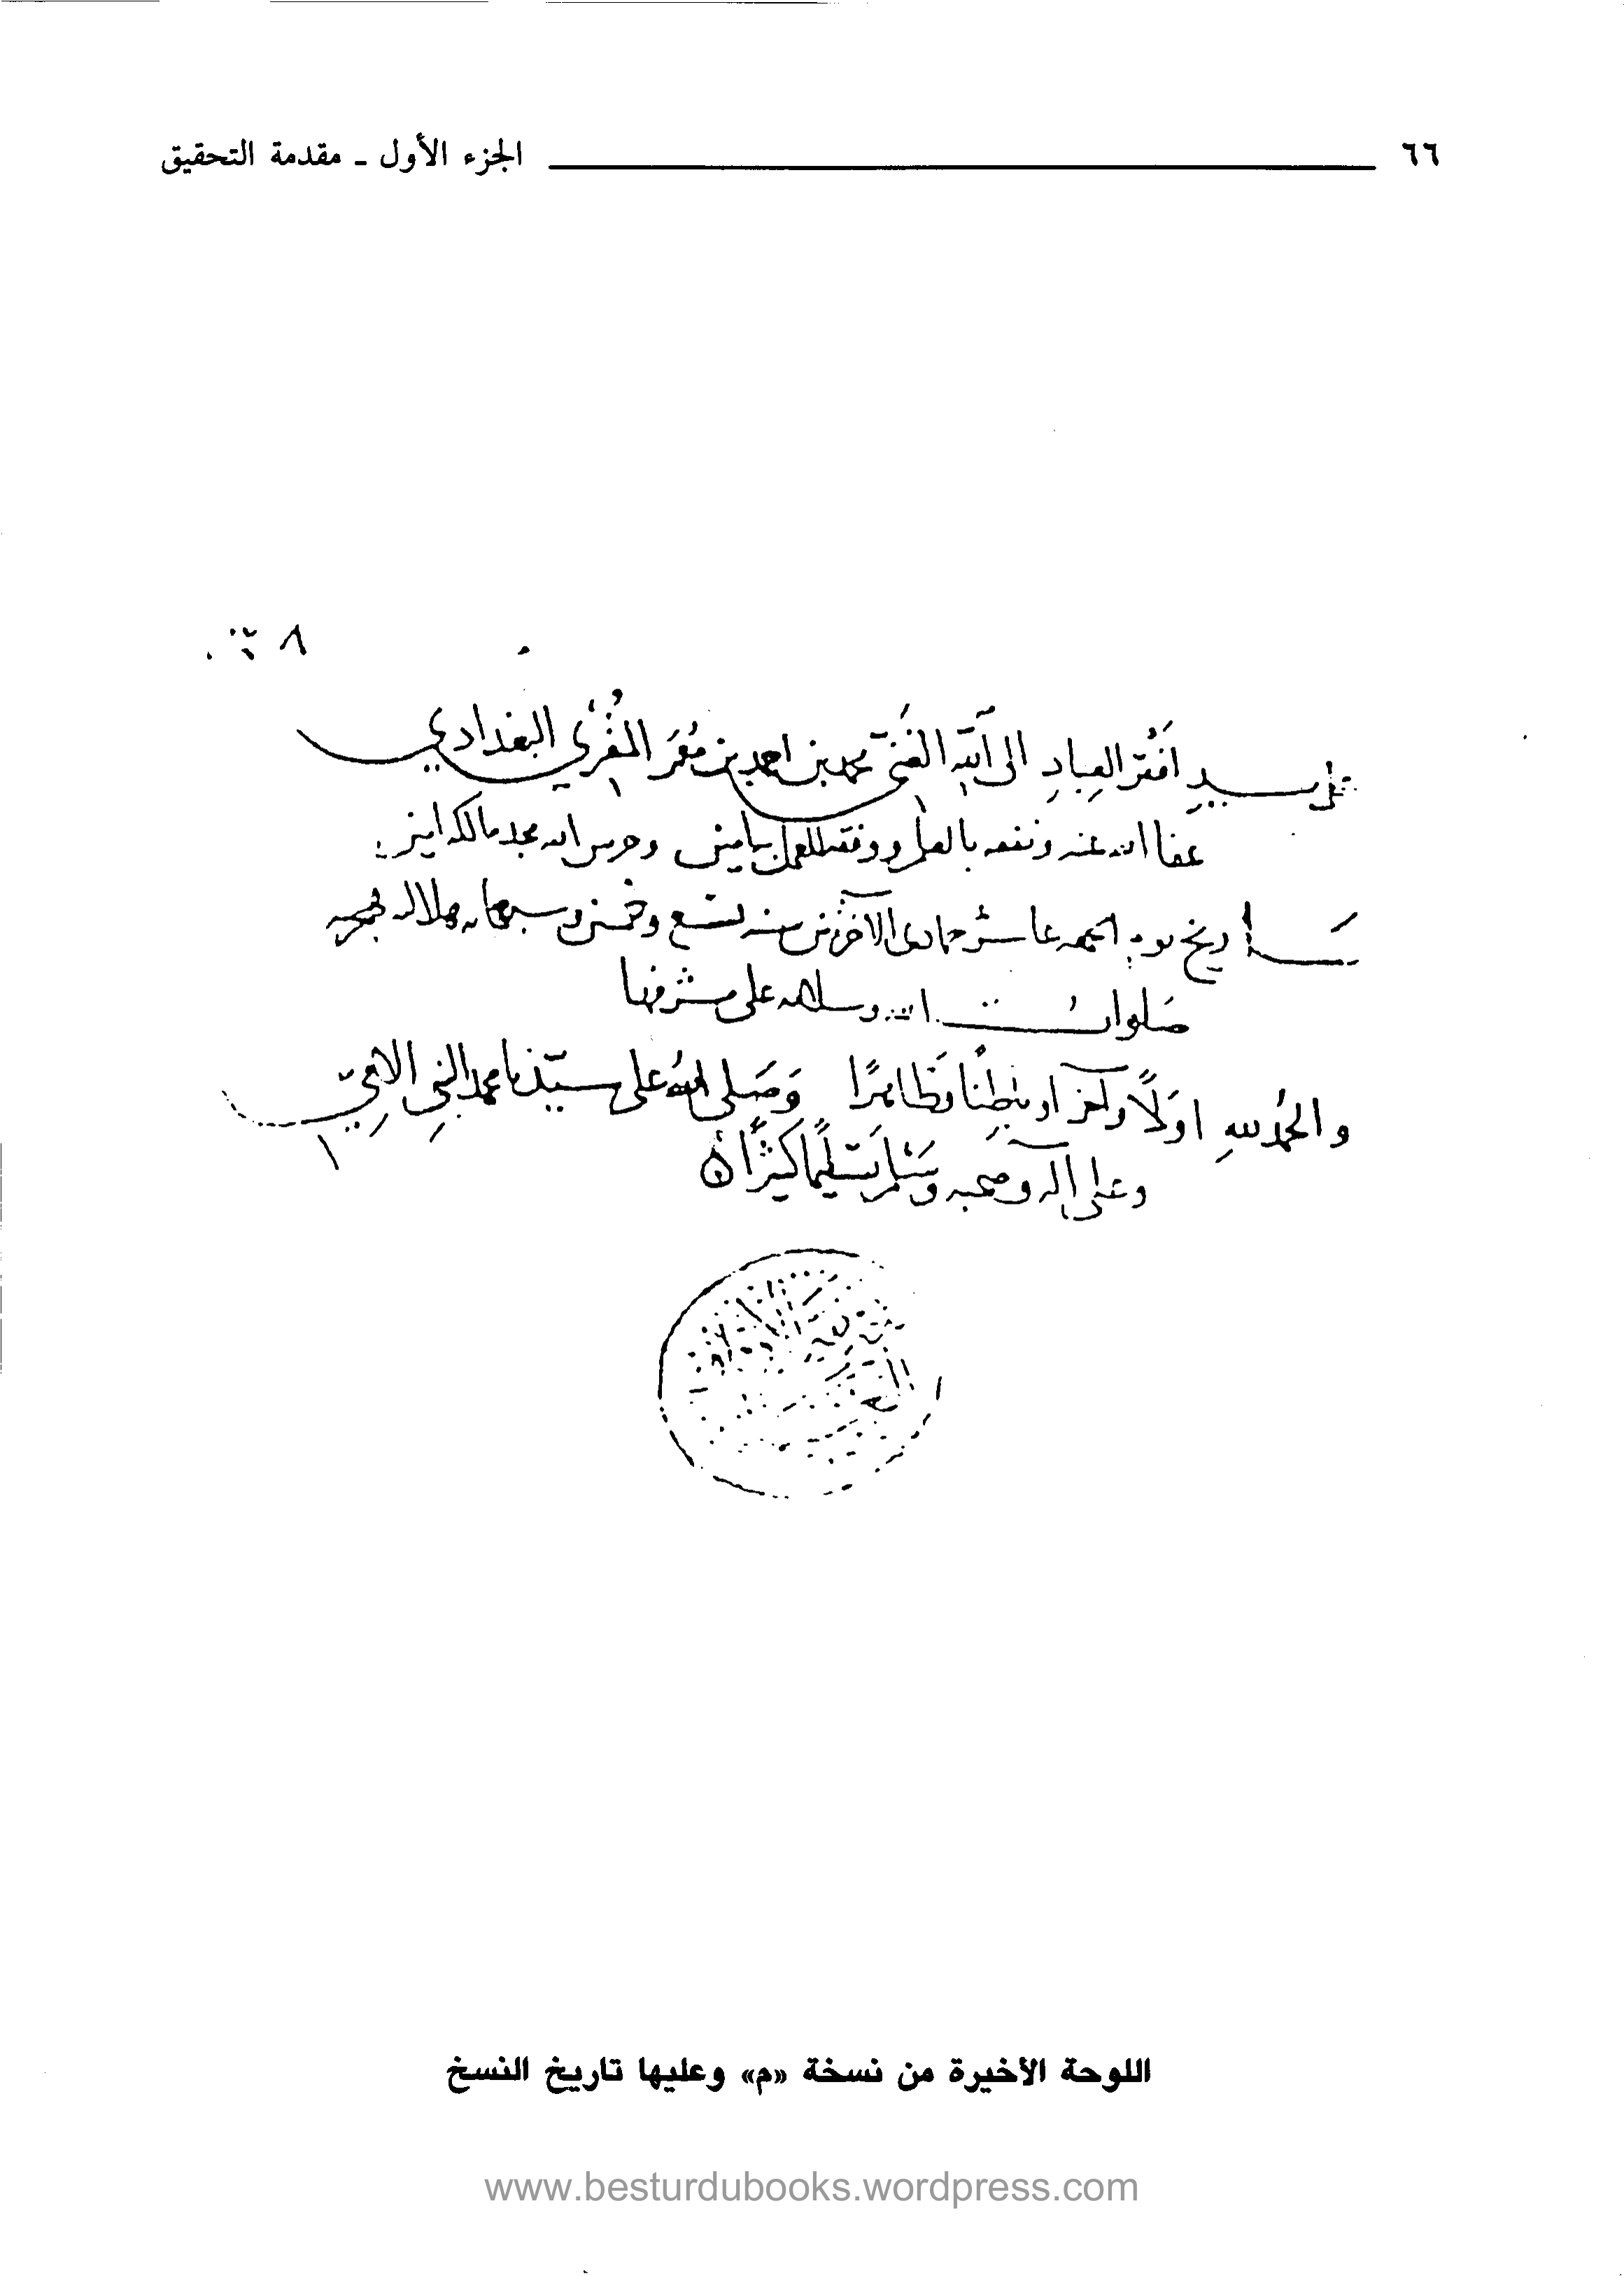 ٦٦ الجزء الأول ـ مقدمة التحقيق
على يد افقر العباد الى الله الغني محمد بن احمد بن معمر المقرئ البغدادي
عفا الله عنه ونفعه بالعلم ووفقه للعمل وحرس الله مجد مالكه امين
تاريخ يوم الجمعه عاشر جمادى الآخرة من سنه تسع وخمسين وسبعمايه هلاليه هجريه
صلوات الله وسلامه على مشرفها
والحمد لله اولًا وآخرًا وباطِنًا وظاهرًا وَصَلى الله على سيّدنا محمد النبي الامي
وعلى آله وصحبه وسَلم تسليمًا كثيرًا
اللوحة الأخيرة من نسخة «م» وعليها تاريخ النسخ
www.besturdubooks.wordpress.com